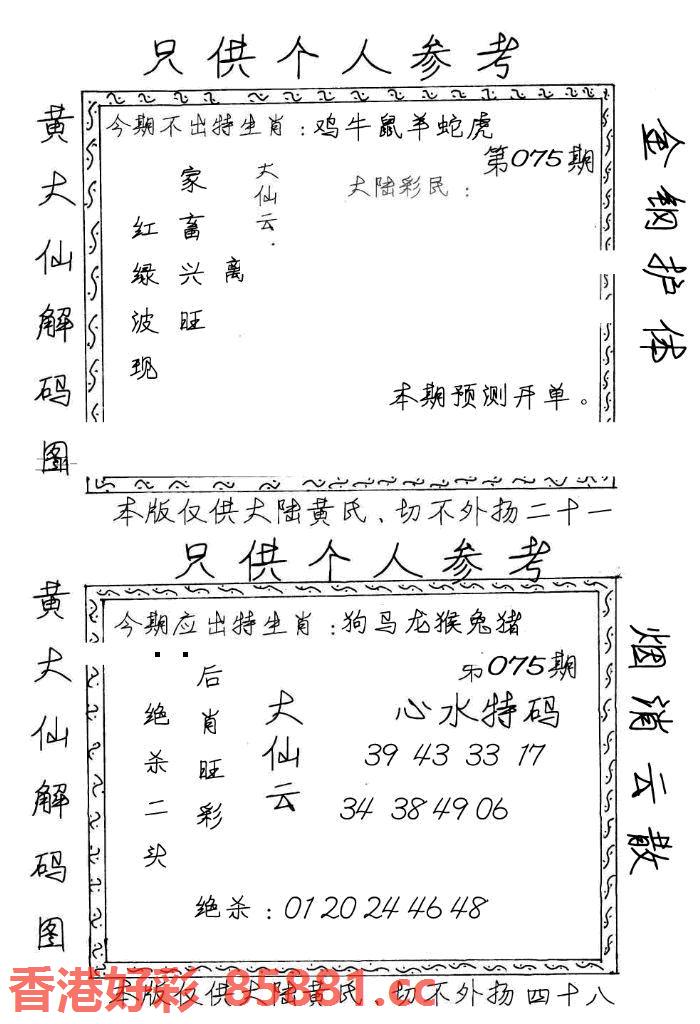 只供个人参考
黄大仙解码图
金钢护体
今期不出特生肖：鸡牛鼠羊蛇虎
第075期
大仙云.
大陆彩民：
离
家畜兴旺
红绿波现
本期预测开单。
本版仅供大陆黄氏、切不外扬二十一
只供个人参考
黄大仙解码图
烟消云散
今期应出特生肖：狗马龙猴兔猪
075期
心水特码
大仙云
后肖旺彩
绝杀二头
39 43 33 17
34 38 49 06
绝杀：01 20 24 46 48
本版仅供大陆黄氏、切不外扬四十八
香港好彩 85881.cc